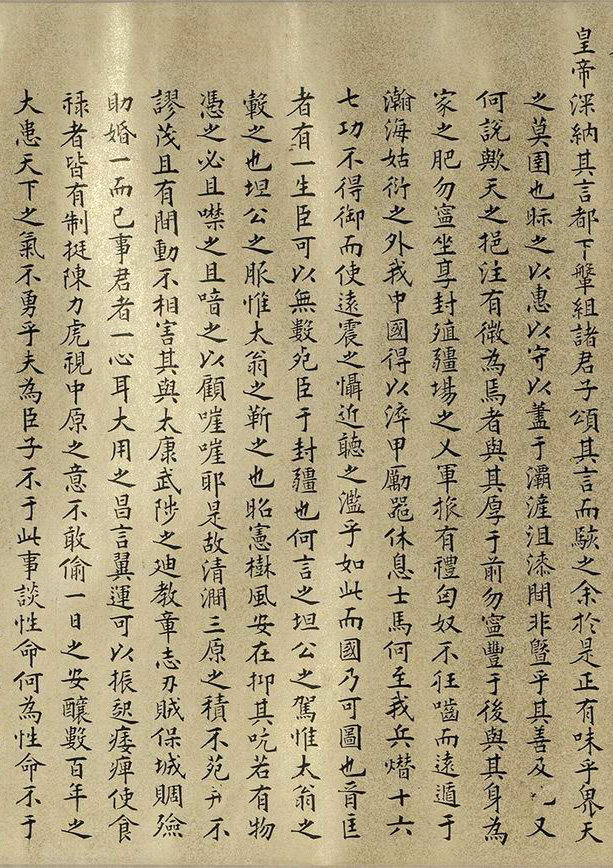 皇帝深納其言都下犖組諸君子頌其言而駭之余於是正有味乎畀天
之莫圉也眎之以惠以守以蓋于灞滻沮漆閒非曁乎其善及又
何說歟天之挹注有微為焉者與其厚于前勿寍豐于後與其身為
家之肥勿寍坐享封殖疆場之乂軍旅有禮匈奴不狂嚙而遠遁于
瀚海姑衍之外我中國得以淬甲勵器休息士馬何至我兵熸十六
七功不得御而使遠震之懾近聽之濫乎如此而國乃可圖也晉
者有一生臣可以無數宛臣于封疆也何言之坦公之駕惟太翁之
轂之也坦公之脤惟太翁之靳之也昭憲樹風安在抑其吭若有物
憑之必且噤之且喑之以顧嘊嘊耶是故清澗三原之積不苑不
謬茂且有間動不相害其與太康武陟之迪教章志刃賊保城賙殮
助婚一而已事君者一心耳大用之昌言翼運可以振起痿痺使食
祿者皆有制挺陳力虎視中原之意不敢偷一日之安釀數百年之
大患天下之氣不勇乎夫為臣子不于此事談性命何為性命不于